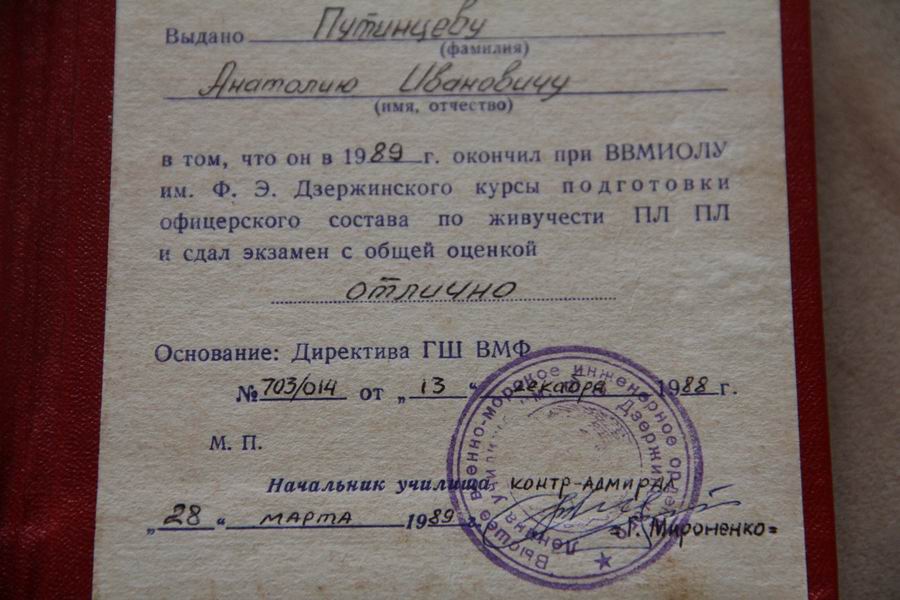 Выдано Путинцеву
(фамилия)
Анатолию Ивановичу
(имя, отчество)
в том, что он в 1989 г. окончил при ВВМИОЛУ
им. Ф. Э. Дзержинского курсы подготовки
офицерского состава по живучести ПЛ ПЛ
и сдал экзамен с общей оценкой
отлично
Основание: Директива ГШ ВМФ
№ 703/014 от „13“ декабря 1988 г.
М. П.
Начальник училища контр-адмирал
„28“ марта 1989 г.
=Г. Мироненко=
Высшее военно-морское инженерное ордена Ленина училище им. Ф. Э. Дзержинского